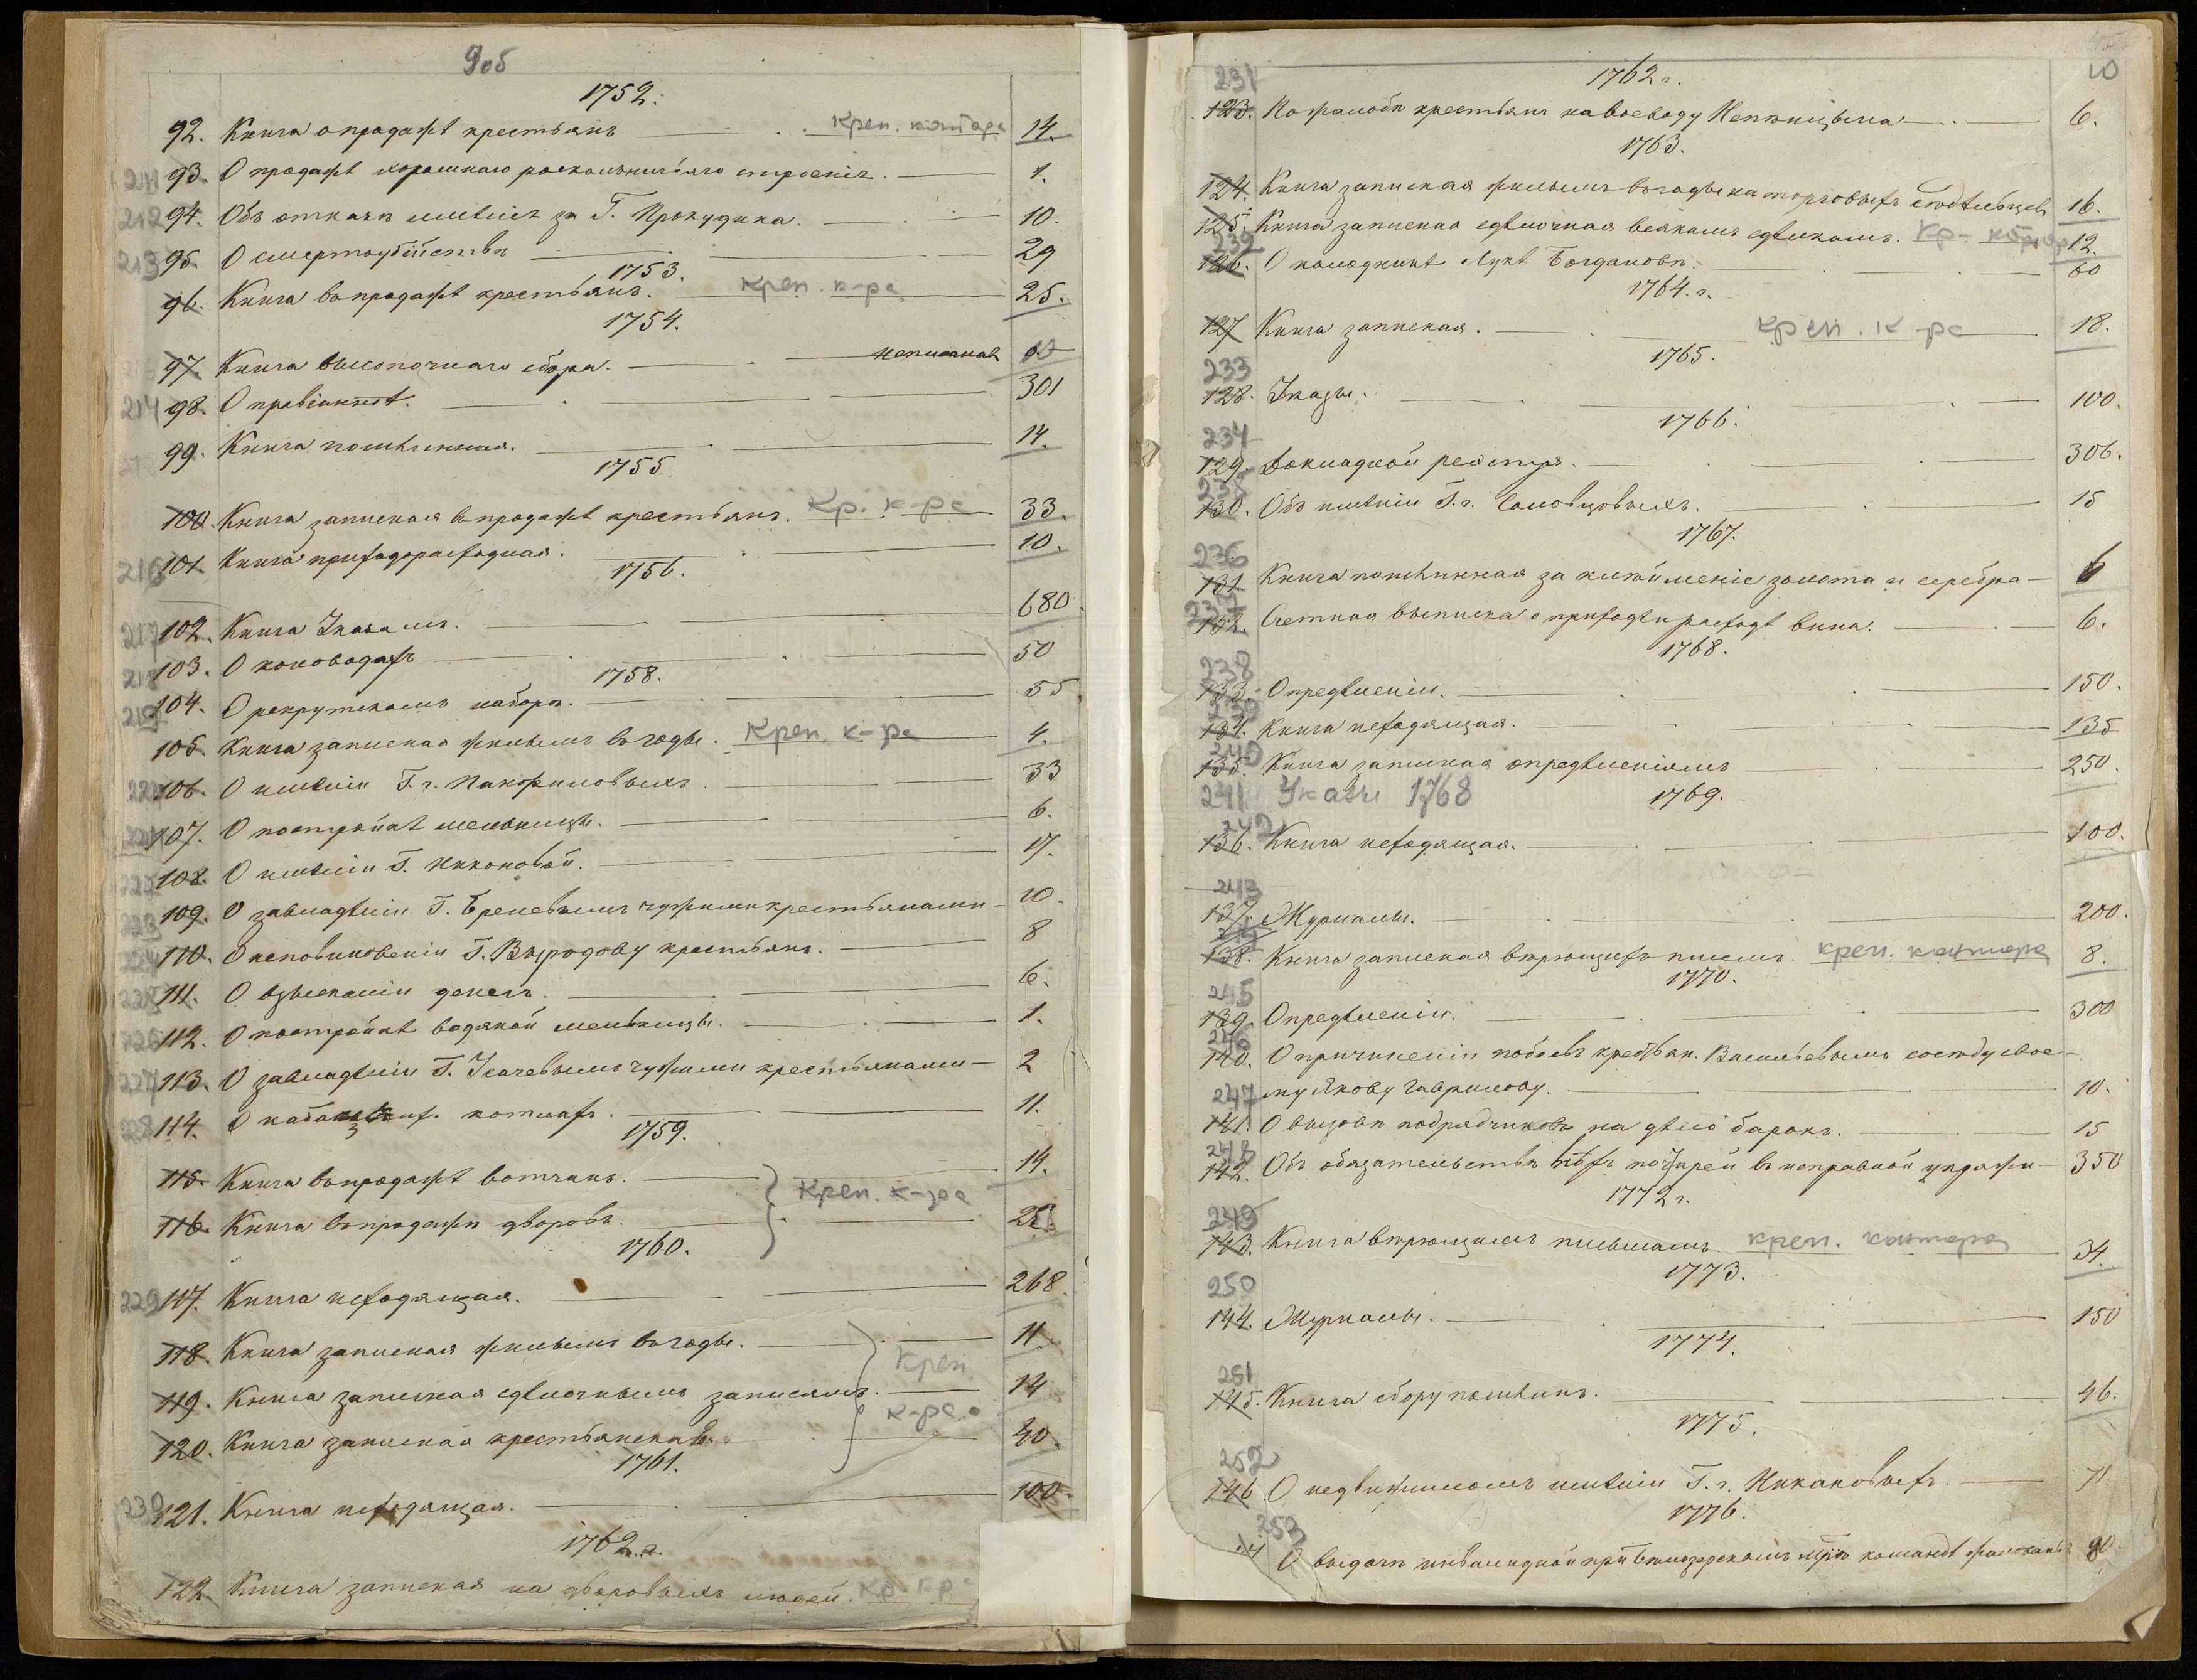 9об
1752.
92. Книга о продажѣ крестьянъ Креп. контора 14.
211 93. О продажѣ хорошкаго раскольничьяго строенія. 1.
212 94. Объ отказѣ имѣнія за Г. Прокудина. 10.
213 95. О смертоубійствѣ 29
1753.
96. Книга о продажѣ крестьянъ. Креп. к-ра 25.
1754.
97. Книга высопочнаго сбора. неписанная 10
214 98. О провіантѣ. 301
99. Книга пошлинная. 14.
1755
100. Книга записная о продажѣ крестьянъ. Кр. к-ра 33.
216 101. Книга приходорасходная. 10.
1756.
217 102. Книга Указамъ. 680.
218 103. О коноводахъ 50
1758.
219 104. О рекрутскомъ наборѣ. 55.
105. Книга записная жилымъ въ годы. Креп. к-ра 4.
220 106. О имѣніи Г.г. Панфиловыхъ. 33
221 107. О постройкѣ мельницы. 6.
222 108. О имѣніи Г. Никоновой. 17.
223 109. О завладѣніи Г. Бреневымъ чужими крестьянами 10.
224 110. О неповиновеніи Г. Выродову крестьянъ. 8
225 111. О взысканіи денегъ. 6.
226 112. О постройкѣ водяной мельницы. 1.
227 113. О завладѣніи Г. Усачевымъ чужими крестьянами 2
228 114. О кабацкихъ котлахъ. 11.
1759.
115. Книга о продажѣ вотчинъ. 14.
Креп. к-ра
116. Книга о продажѣ дворовъ. 25.
1760.
229 117. Книга исходящая. 268.
118. Книга записная жилымъ въ годы. 11.
Креп.
119. Книга записная сдѣлочнымъ записямъ. 14
к-ра
120. Книга записная крестьянская. 40.
1761.
230 121. Книга исходящая. 100.
1762. г.
122. Книга записная на дворовыхъ людей. Кр. к-ра
10
1762 г.
231 123. По жалобѣ крестьянъ на воеводу Непеицына 6.
1763.
124. Книга записная жилымъ въ годы на торговыхъ 16.
125. Книга записная сдѣлочная всякимъ сдѣлкамъ. Кр- контора 12.
232 126. О колодникѣ Лукѣ Богдановѣ. 60
1764. г.
127 Книга записная. Креп. к-ра 18.
1765.
233 128. Указы. 100.
1766.
234 129. Докладной реэстръ. 306.
235 130. Объ имѣніи Г.г. Самовцовыхъ. 15
1767.
236 131 Книга пошлинная за клейменіе золота и серебра 6
237 132. Счетная выписка о приходѣ и расходѣ вина. 6.
1768.
238 133. Опредѣленіи. 150.
239 134. Книга исходящая. 135
240 135. Книга записная опредѣленіямъ 250.
241 Указы 1768
1769.
242 136. Книга исходящая. 100.
243 137. Журналы. 200.
138. Книга записная вѣрющихъ писемъ. креп. контора 8.
1770.
245 139. Опредѣленіи. 300
246 140. О причиненіи побоевъ крестьян. Васильевымъ сосѣду свое-
му Якову Гаврилову. 10.
247 141. О вызовѣ подрядчиковъ на дѣло барокъ. 15
248 142. Объ обязательствѣ почтарей въ исправной упряжи 350
1772 г.
249 143. Книга вѣрющимъ письмамъ. креп. контора 34.
1773.
250 144. Журналы. 150
1774.
251 145. Книга сбору пошлинъ. 46.
1775.
252 146. О недвижимомъ имѣніи Г.г. Никановыхъ. 71
1776.
253 О выдачѣ инвалидной при Бѣлозерскомъ командѣ жалованья 90